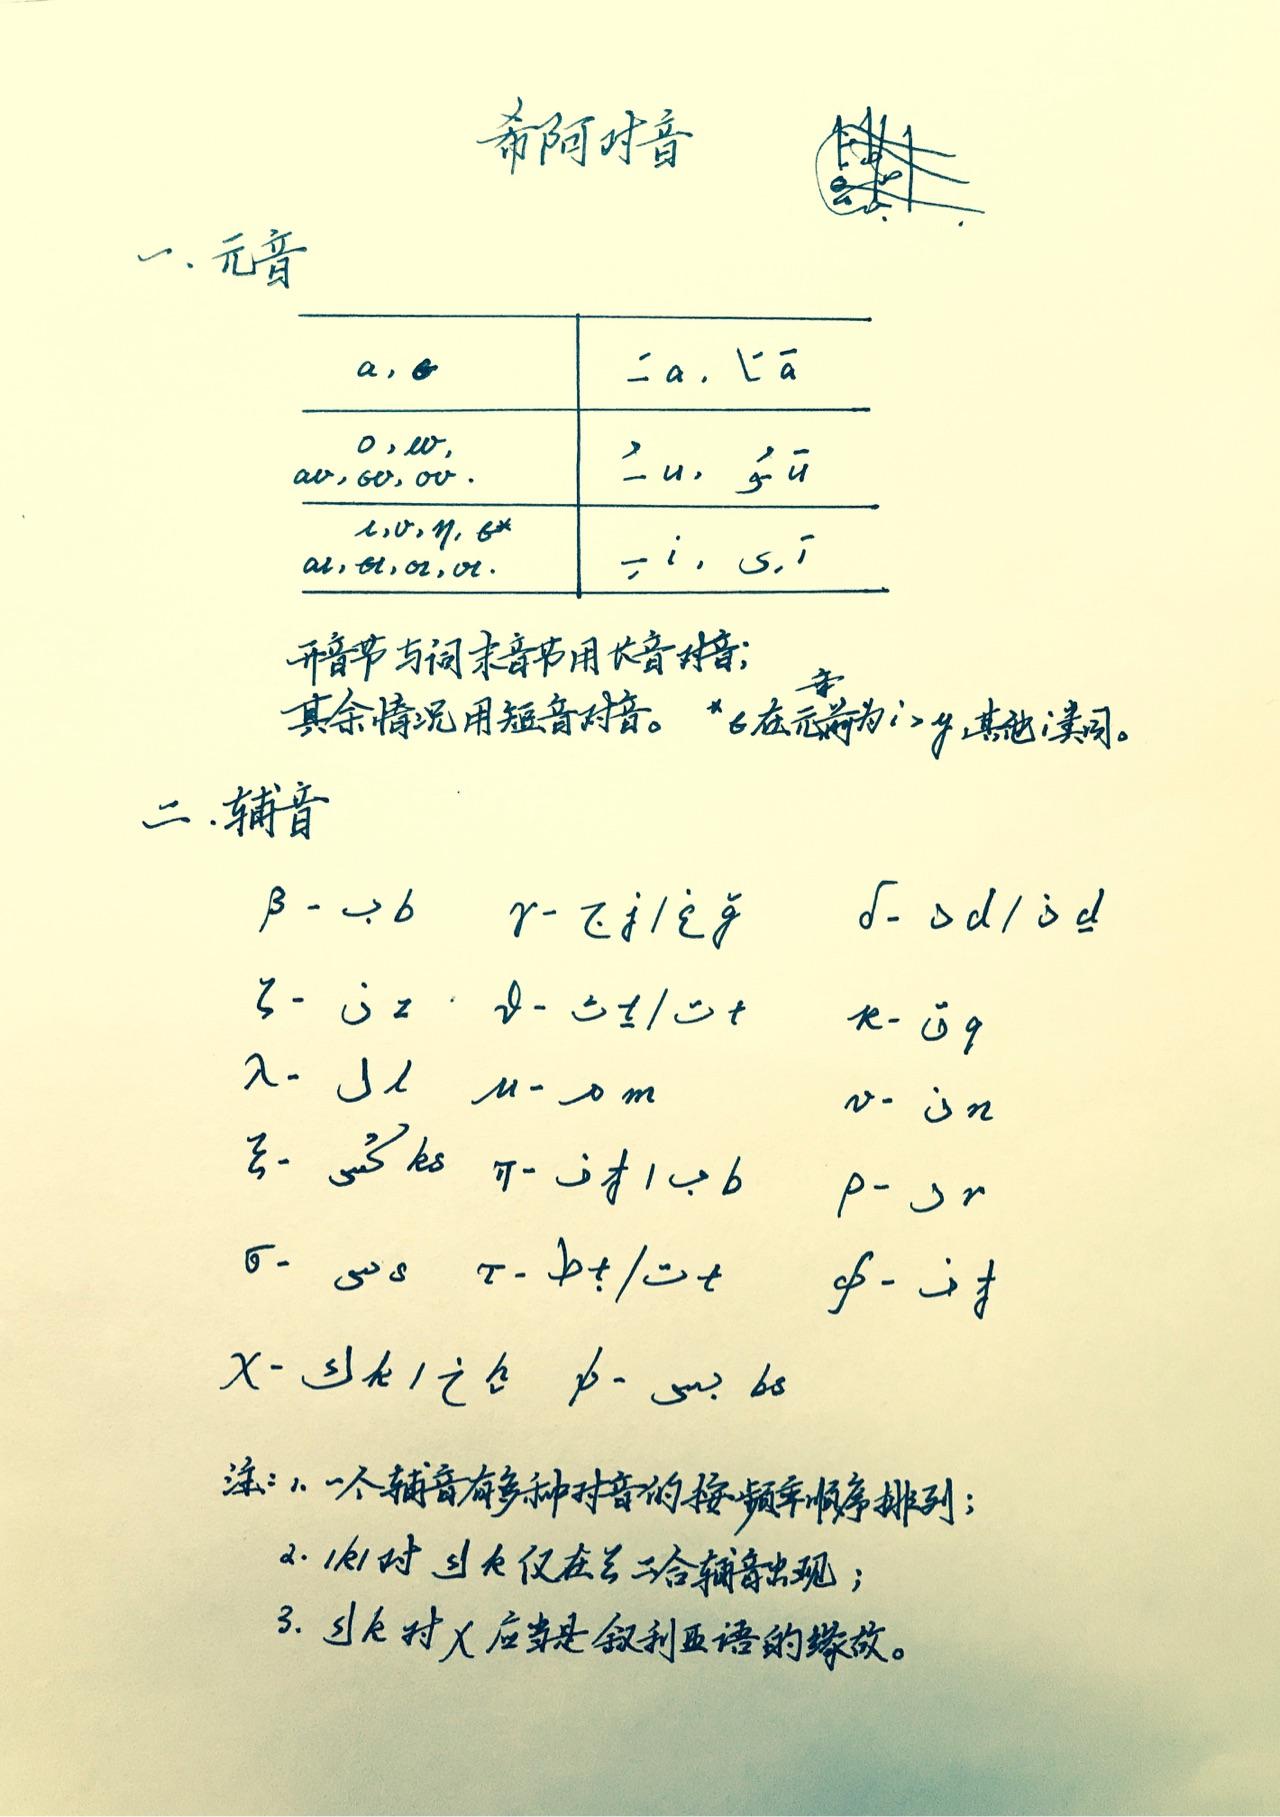 希阿对音
一.元音
α, ε | َ a, َا ā
ο, ω,
αυ, ευ, ου. | ُ u, ُو ū
ι, υ, η, ε*
αι, ει, οι, υι. | ِ i, ي, ī
开音节与词末音节用长音对音;
音
其余情况用短音对音。 *ε在元前为i>y,其他i类同。
二.辅音
β - ب b γ - ج ǰ / غ ğ δ - د d / ذ ḏ
ζ - ز z ϑ - ث ṯ / ت t κ - ق q
λ - ل l μ - م m ν - ن n
ξ - كس ks π - ف f / ب b ρ - ر r
σ - س s τ - ط ṭ / ت t φ - ف f
χ - ك k / خ ḫ ψ - بس bs
注:1. 一个辅音有多种对音的按频率顺序排列;
2. /k/对 ك k 仅在ξ二合辅音出现;
3. ك k 对 χ 应当是叙利亚语的缘故。